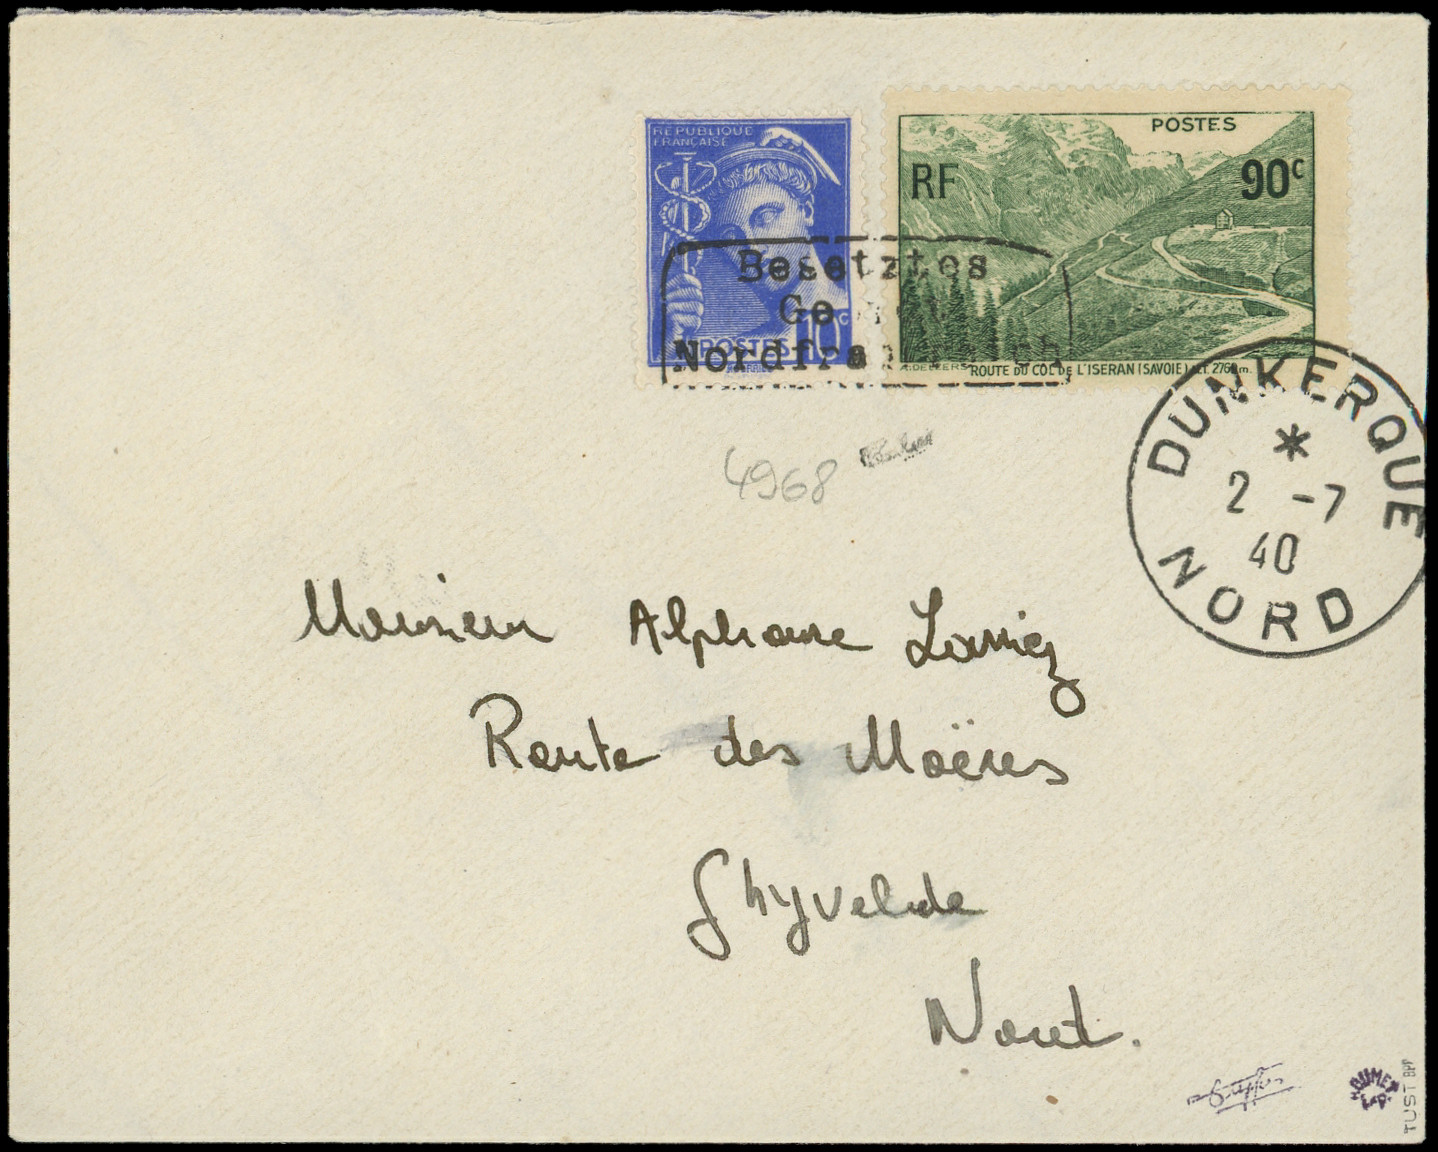 REPUBLIQUE
FRANÇAISE
POSTES
10c
POSTES
RF
90c
A. DELZERS
ROUTE DU COL DE L'ISERAN (SAVOIE) ALT. 2769 m.
Besetztes
Nordfrankreich
DUNKERQUE
*
2 -7
40
NORD
4968
Monsieur Alphonse
Route des Moëres
Ghyvelde
Nord.
ROUMET
TUST BPP